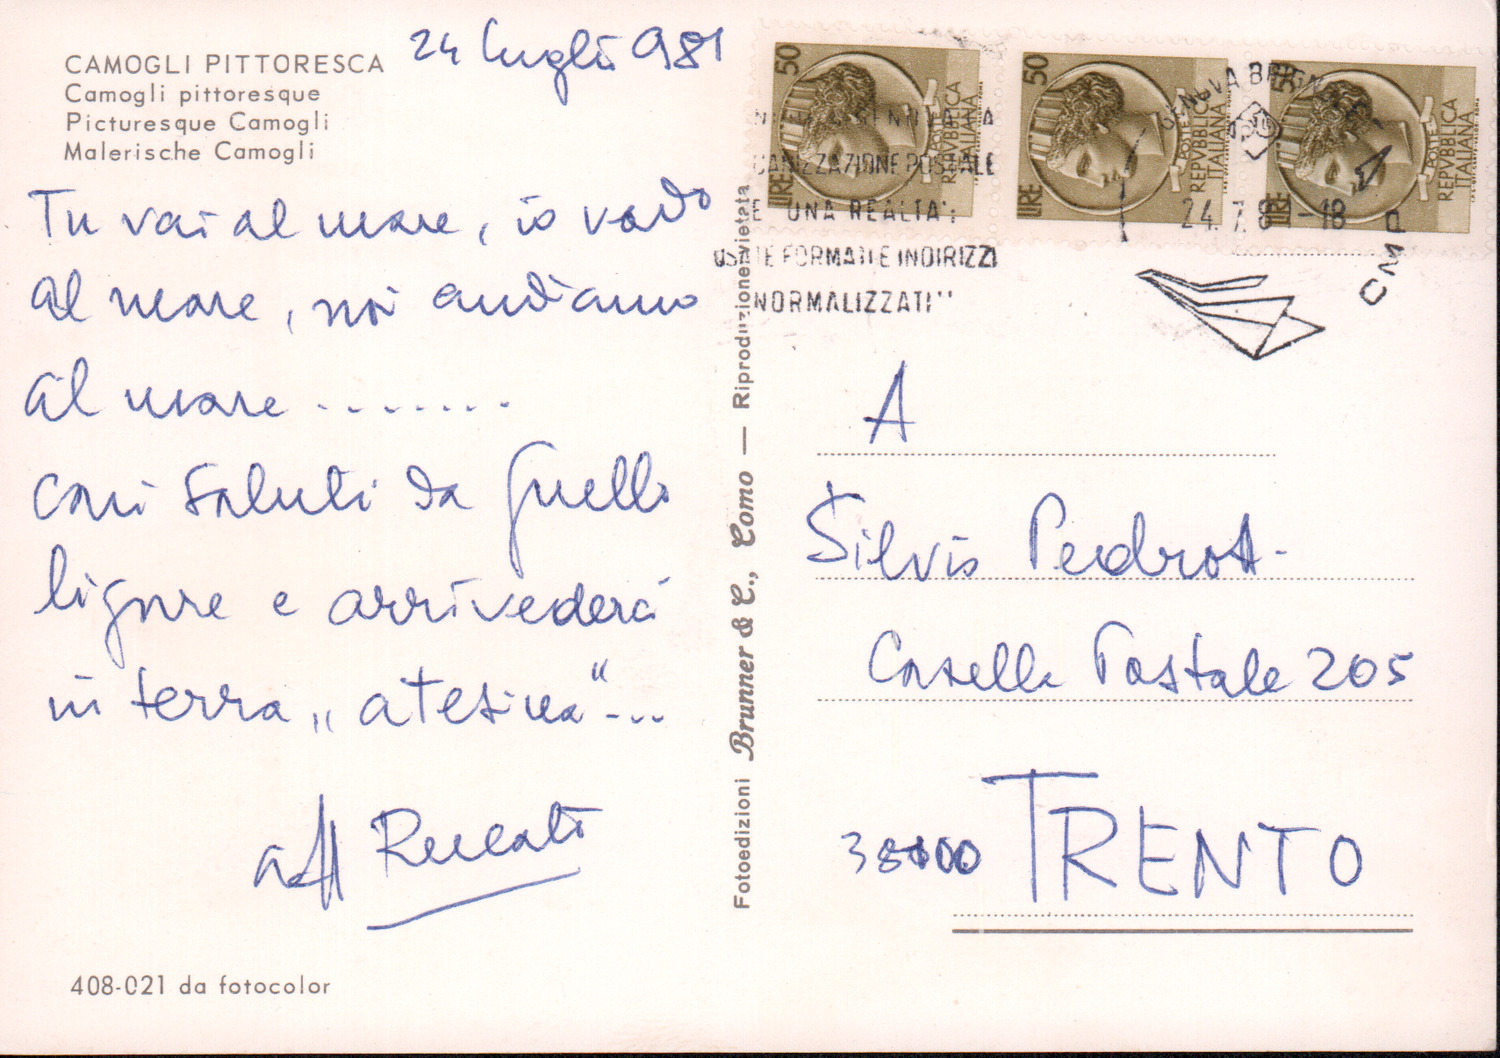 CAMOGLI PITTORESCA
Camogli pittoresque
Picturesque Camogli
Malerische Camogli
24 luglio 981
Tu vai al mare, io vado
al mare, noi andiamo
al mare ........
cari saluti da quello
ligure e arrivederci
in terra „atesina“...
aff
408-021 da fotocolor
Fotoedizioni Brunner & C., Como — Riproduzione vietata
50 LIRE POSTE REPVBBLICA ITALIANA
50 LIRE POSTE REPVBBLICA ITALIANA
50 LIRE POSTE REPVBBLICA ITALIANA
GENOVA
POSTALE
E UNA REALTA';
USATE FORMATI E INDIRIZZI
NORMALIZZATI"
GENOVA
24.7.81-18
CMP
A
Silvio Pedrotti
Casella Postale 205
38100 TRENTO